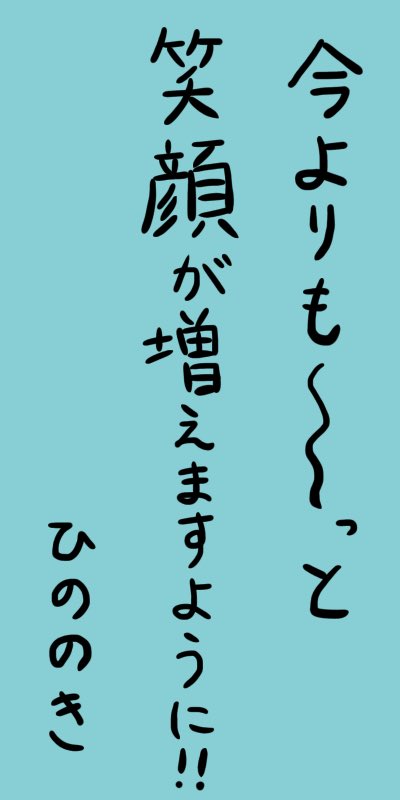 今よりも〜っと
笑顔が増えますように!!
ひののき